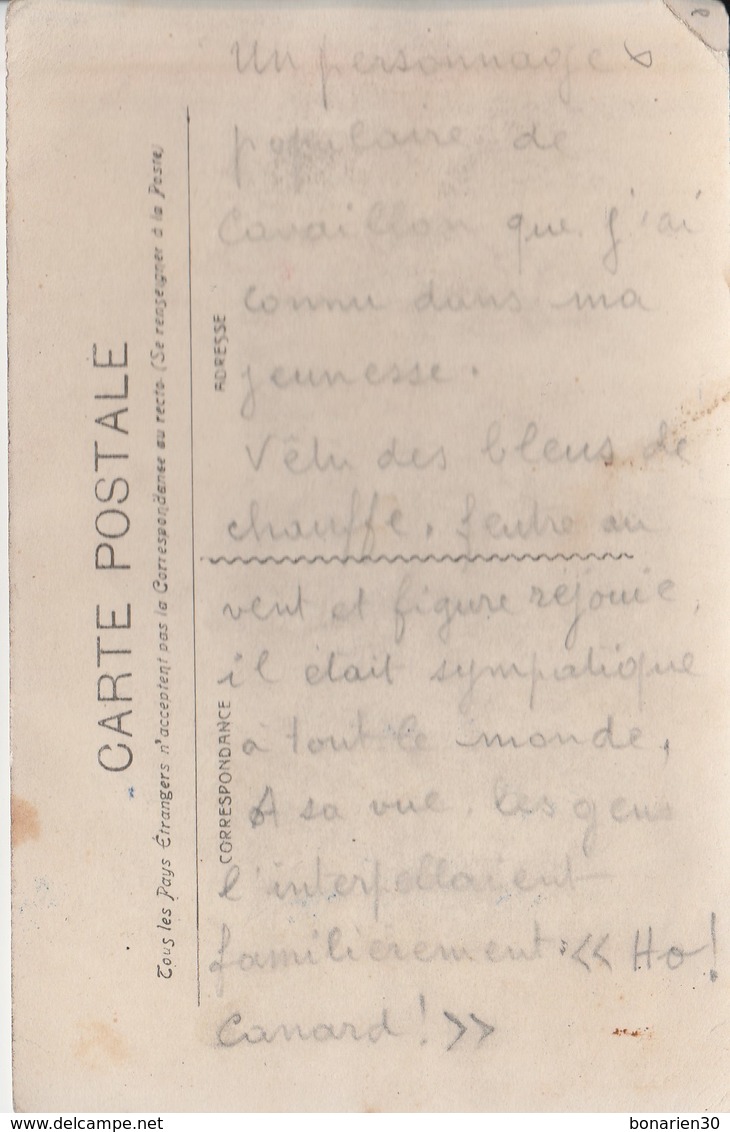 Un personnage
populaire de
Cavaillon que j'ai
connu dans ma
jeunesse.
Vêtu des bleus de
chauffe, feutre au
vent et figure réjouie,
il était sympatique
à tout le monde,
A sa vue, les gens
l'interpellaient
familièrement : << Ho !
Canard ! >>
CARTE POSTALE
Tous les Pays Étrangers n'acceptent pas la Correspondance au recto (Se renseigner à la Poste)
CORRESPONDANCE
ADRESSE
delcampe.net
bonarien30